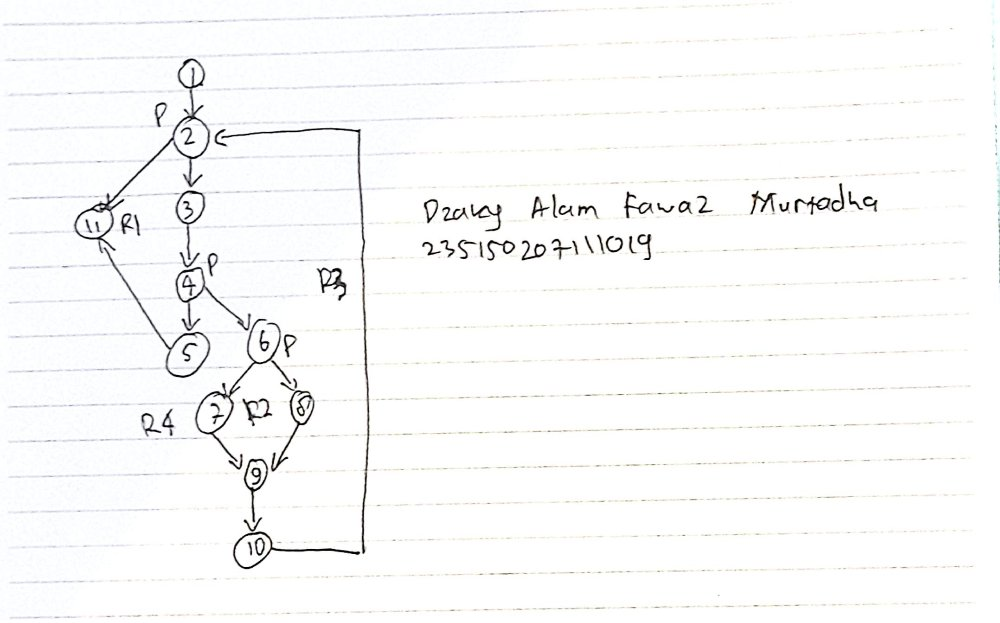 1
P
2
3
11 R1
P
4
R3
5
6 P
7 R2 8
R4
9
10
Dzaky Alam Fawaz Murtadha
235150207111019